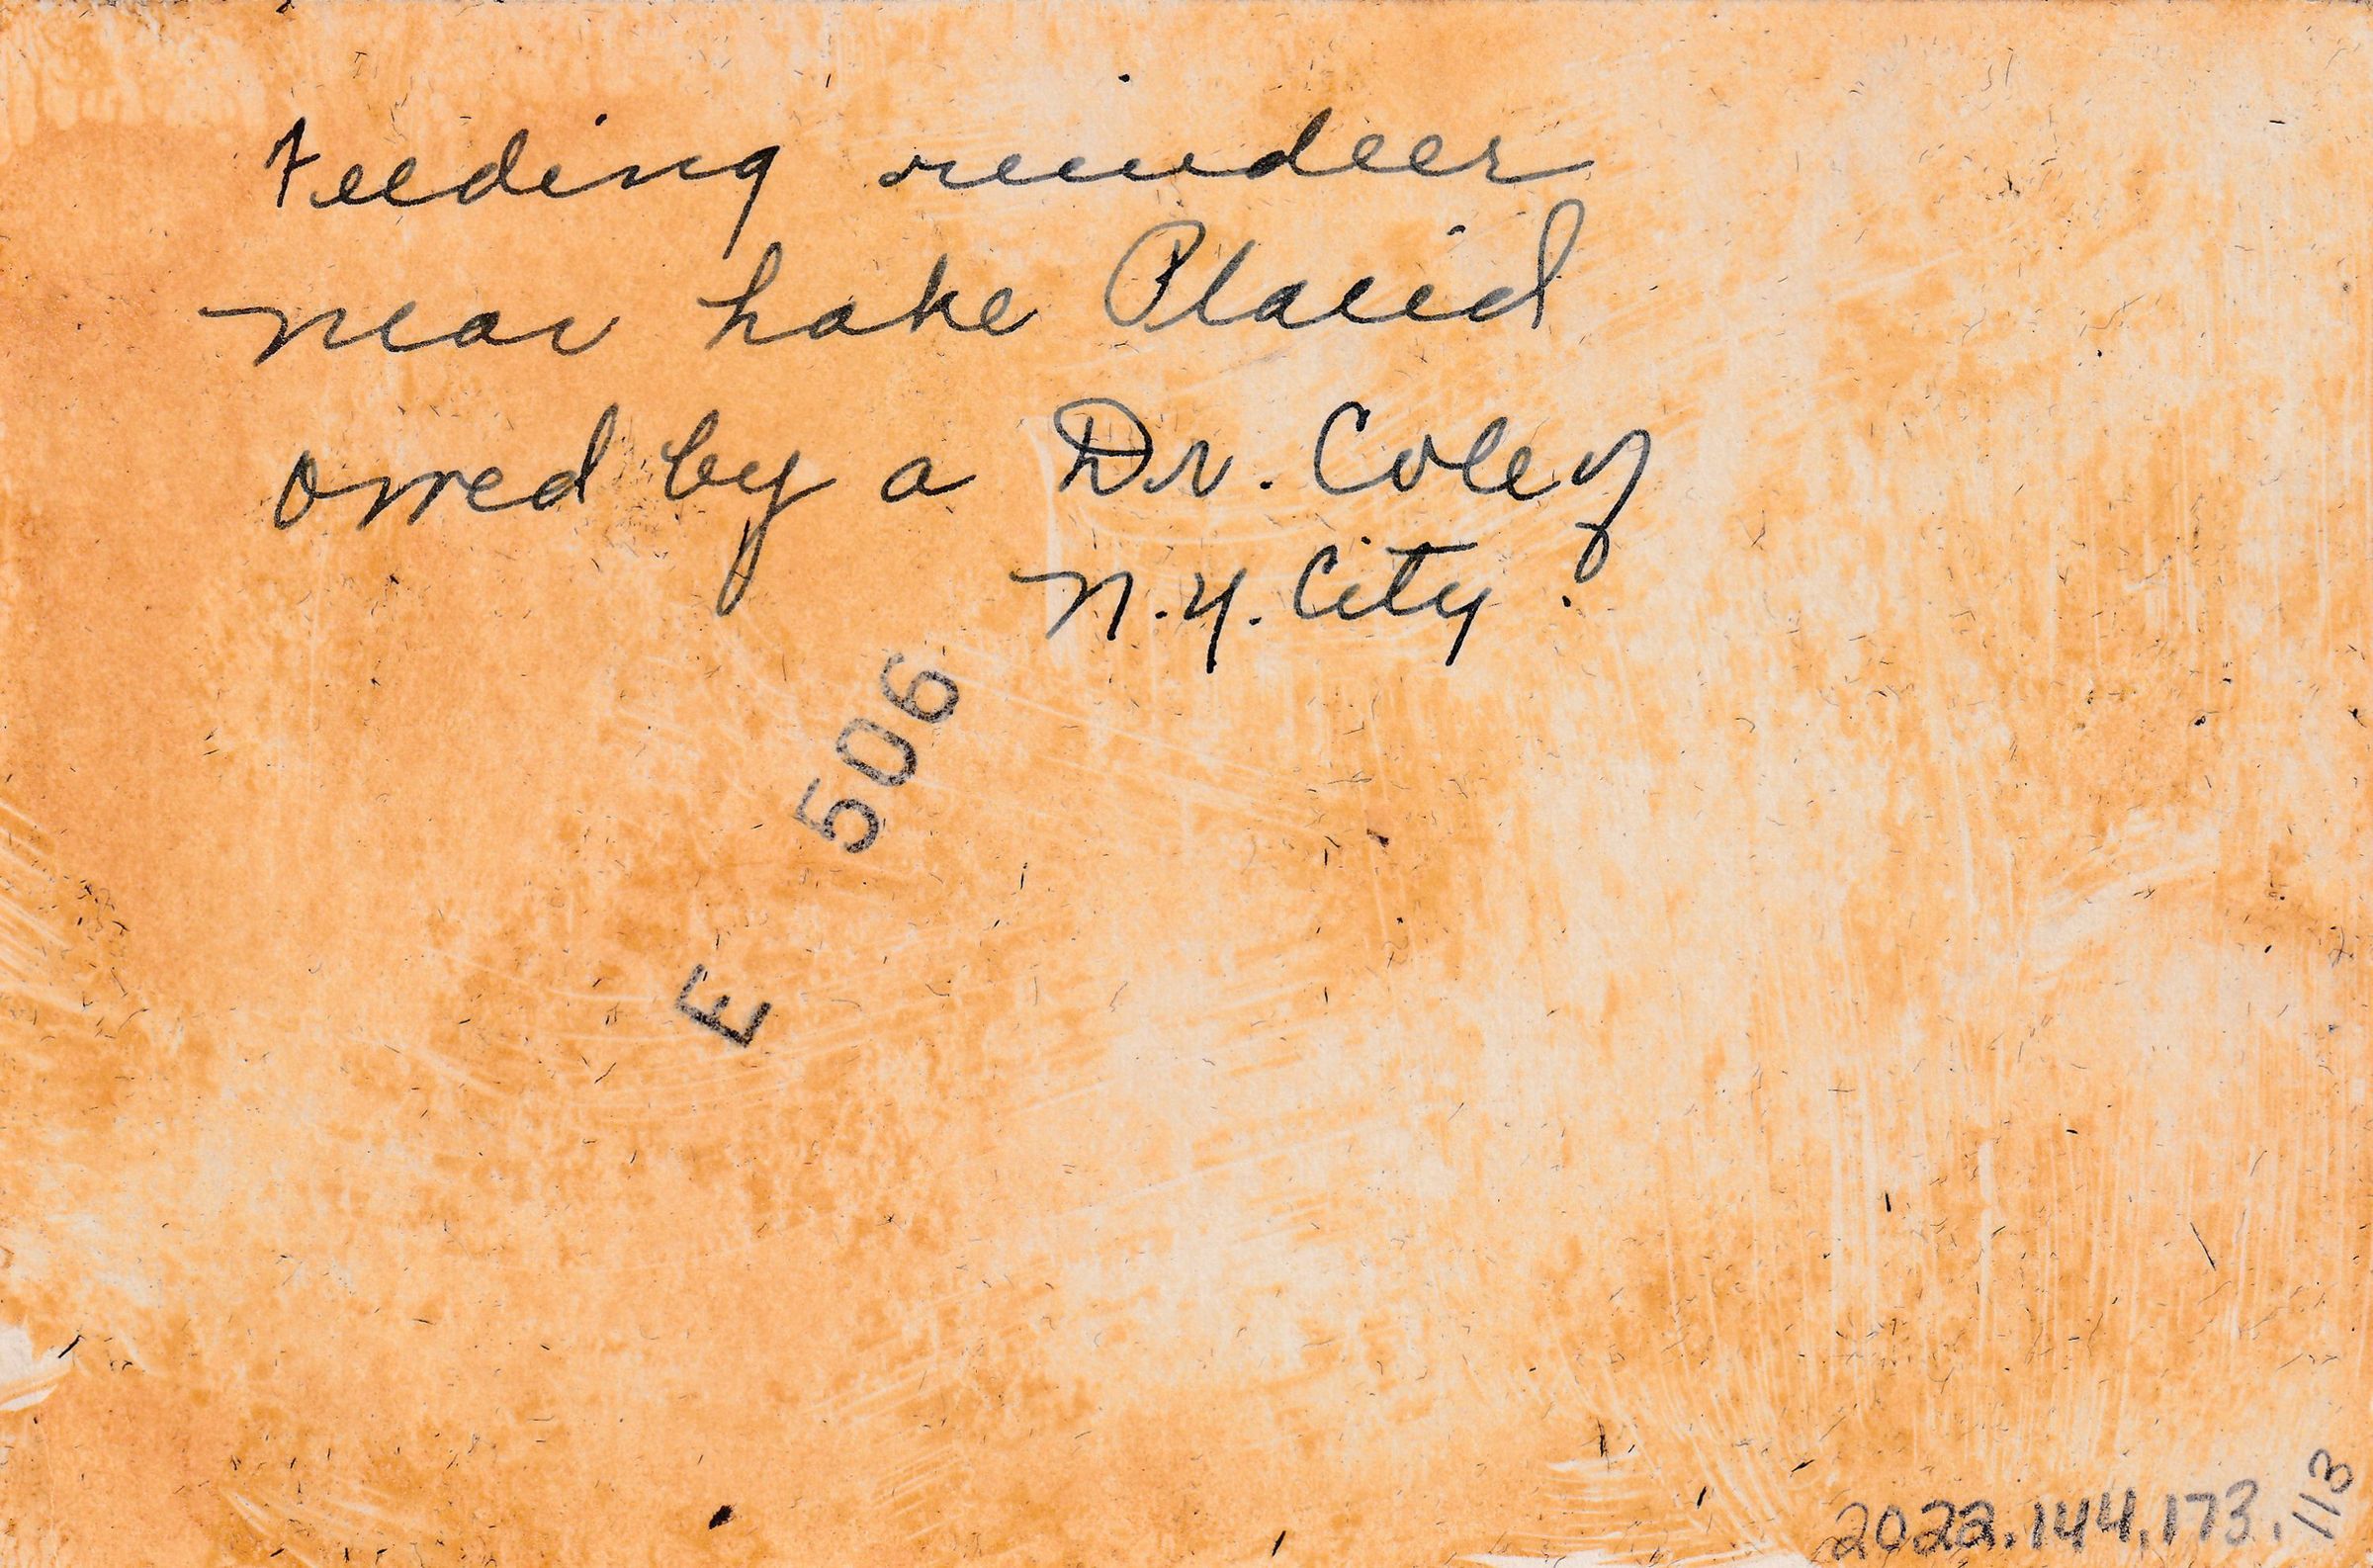 Feeding reindeer
near Lake Placid
owed by a Dr. Coley
N.Y. City.
E 506
2022.144.173.113